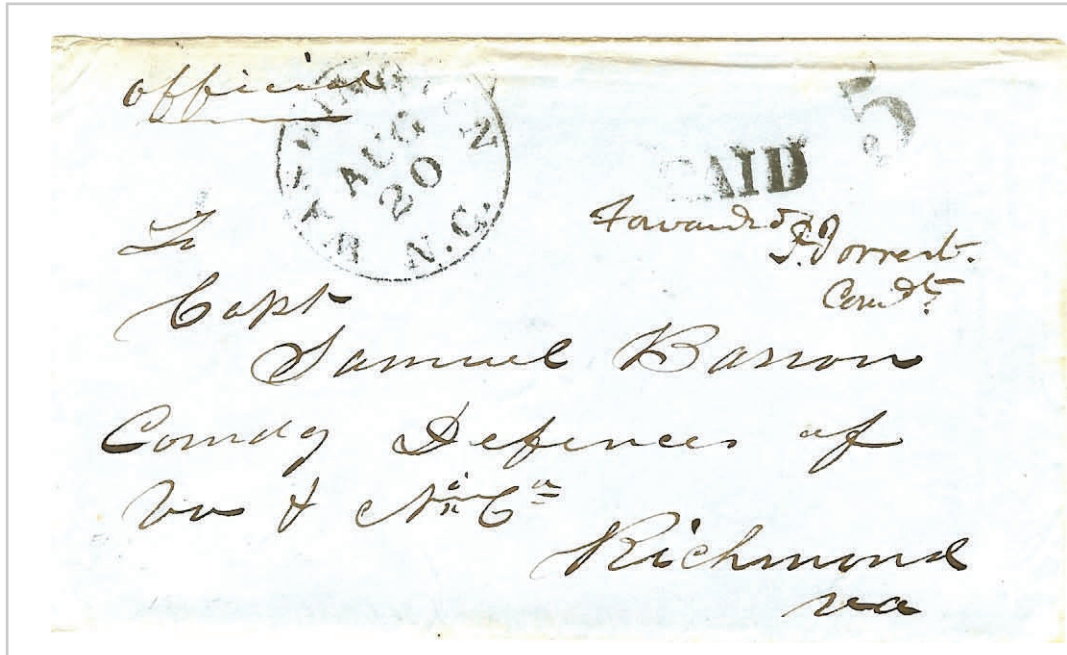 official
WASHINGTON
AUG
20
N.C.
PAID 5
Forwarded
F. Forrest.
Comdt.
To
Capt
Samuel Barron
Comdg Defences of
Va & No Ca
Richmond
Va